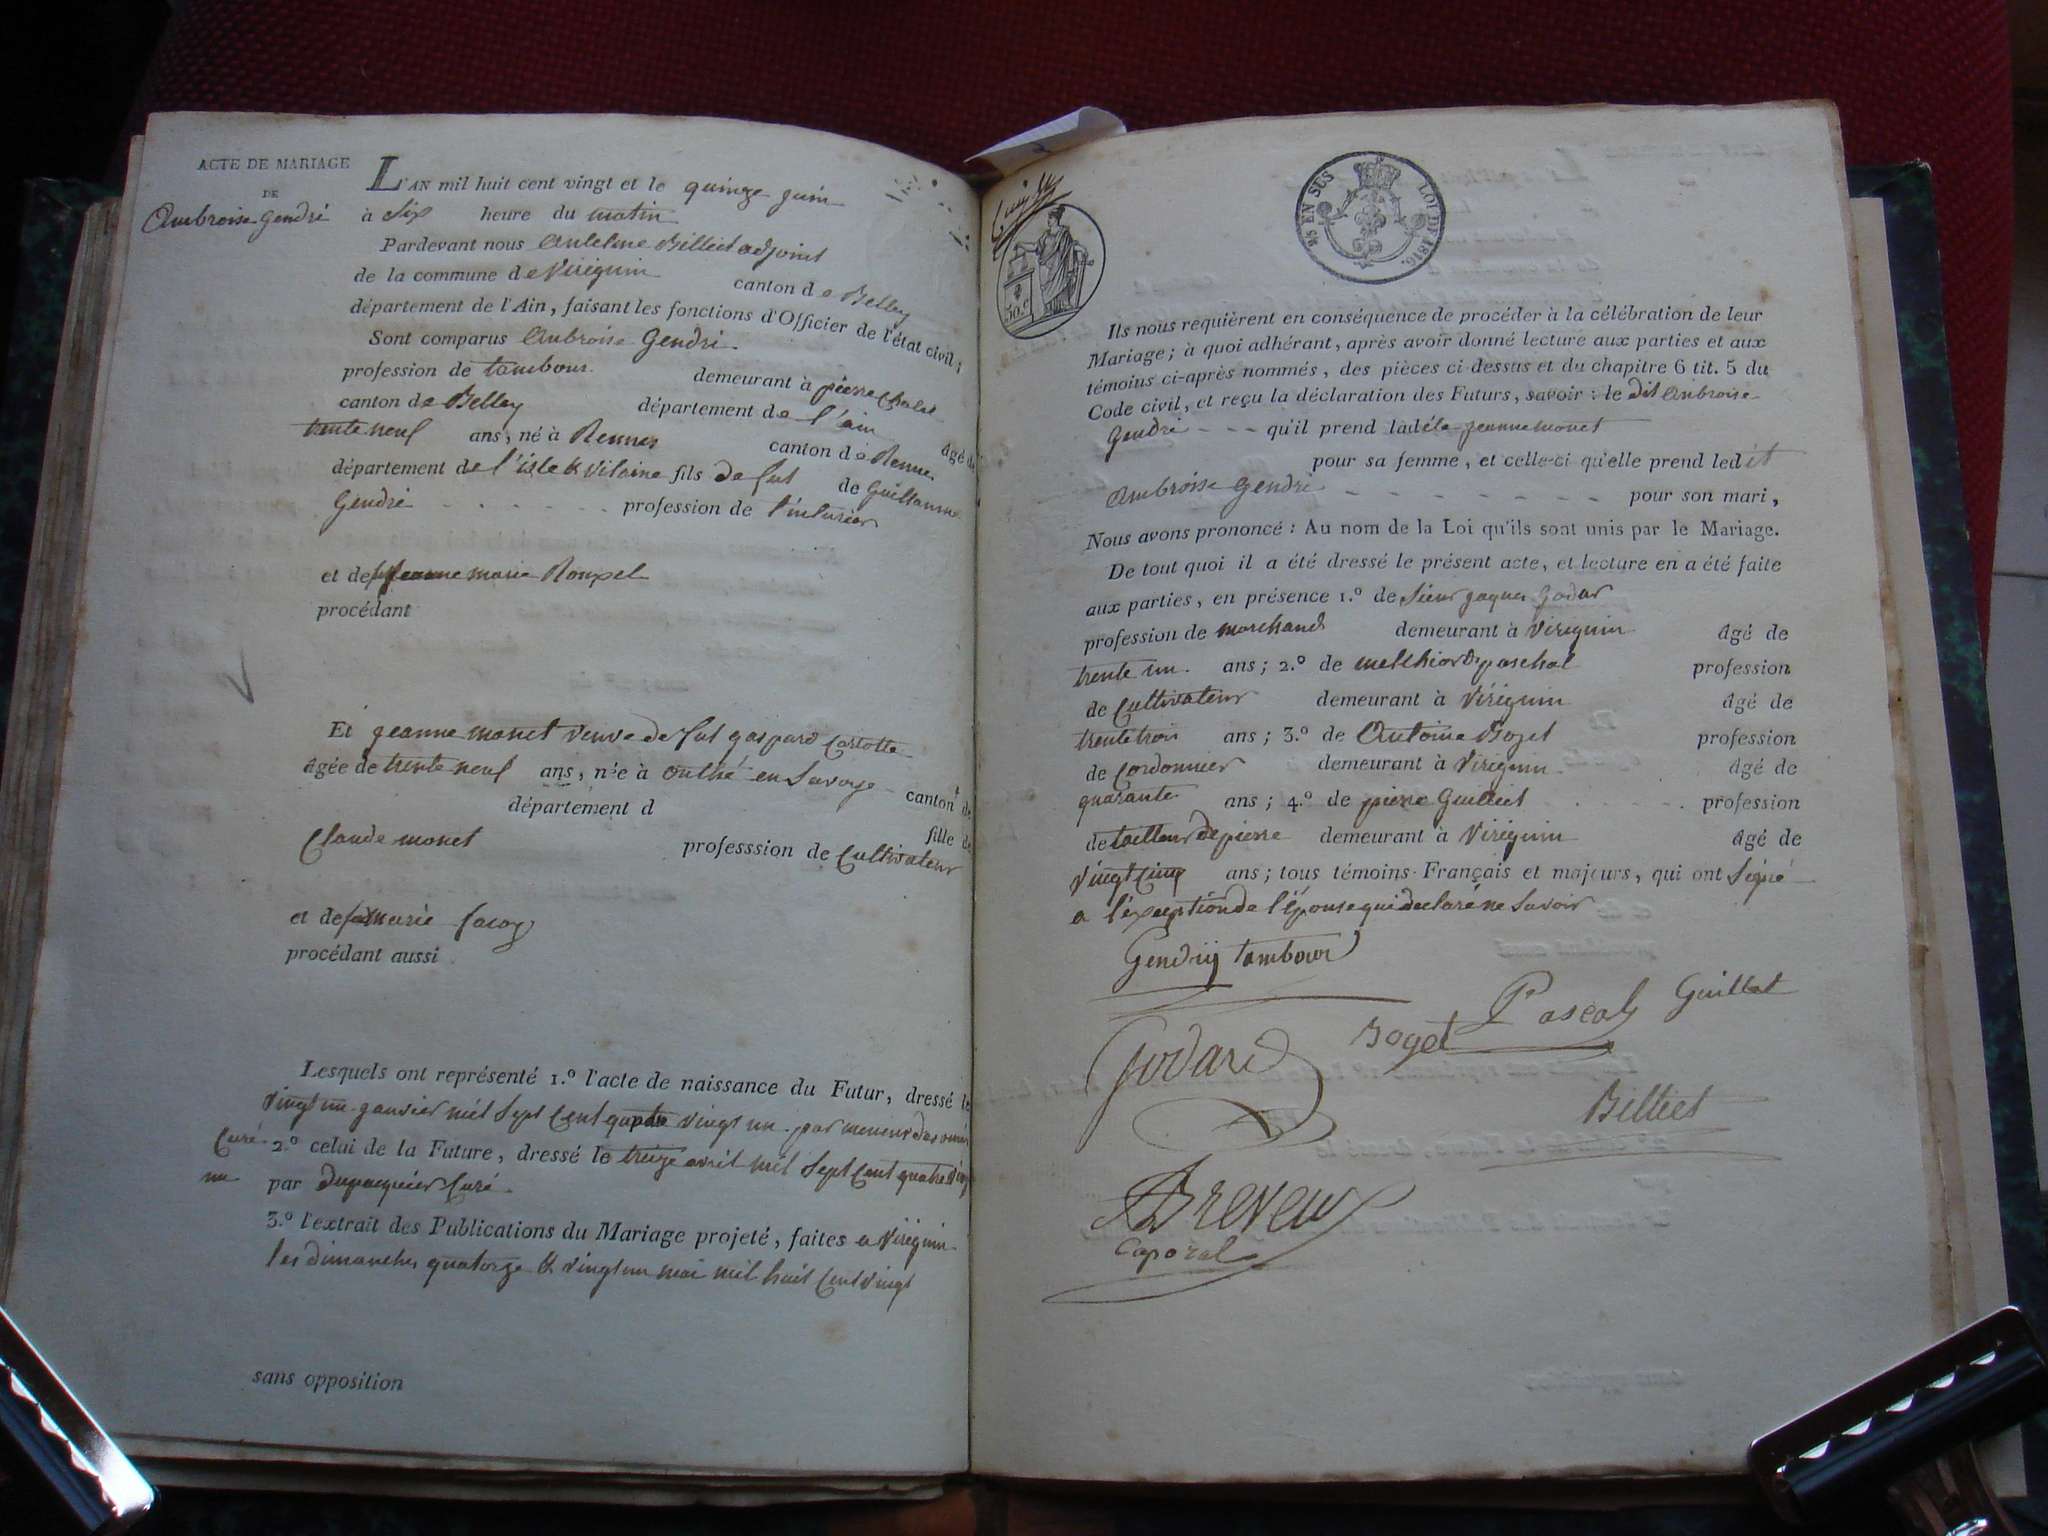 ACTE DE MARIAGE
DE
Ambroise Gendré
L'AN mil huit cent vingt et le quinze juin
à Six heure du matin
Pardevant nous Antelme Billiet adjoint
de la commune de Virignin canton de Belley
département de l'Ain, faisant les fonctions d'Officier de l'état civil ;
Sont comparus Ambroise Gendré
profession de tambour demeurant à pierre Chatel
canton de Belley département de l'ain âgé de
trente neuf ans, né à Rennes canton de Rennes
département de l'isle & Vilaine fils de fut de Guillaume
Gendré profession de tinturier
et de Jeanne marie Roupel
procédant
Et jeanne monet veuve de fut gaspard Carlotte
âgée de trente neuf ans, née à en Savoye canton de
département d fille de
Claude monet professsion de Cultivateur
et de marie
procédant aussi
Lesquels ont représenté 1.º l'acte de naissance du Futur, dressé le
vingt un janvier mil sept cent quatre vingt un par
Curé 2.º celui de la Future, dressé le treize avril mil sept cent quatre vingt
un par Dupasquier Curé
3.º l'extrait des Publications du Mariage projeté, faites a Virignin
les dimanches quatorze & vingt un mai mil huit cent vingt
sans opposition
EN SUS LOI DE 1816.
50.c
Ils nous requièrent en conséquence de procéder à la célébration de leur
Mariage ; à quoi adhérant, après avoir donné lecture aux parties et aux
témoins ci-après nommés, des pièces ci-dessus et du chapitre 6 tit. 5 du
Code civil, et reçu la déclaration des Futurs, savoir : le dit Ambroise
Gendré - - - qu'il prend ladite jeanne monet
pour sa femme, et celle-ci qu'elle prend ledit
Ambroise Gendré - - - - - - - - pour son mari,
Nous avons prononcé : Au nom de la Loi qu'ils sont unis par le Mariage.
De tout quoi il a été dressé le présent acte, et lecture en a été faite
aux parties, en présence 1.º de Sieur jaques Godar
profession de marchand demeurant à Virignin âgé de
trente un ans ; 2.º de melchior paschal profession
de Cultivateur demeurant à Virignin âgé de
trente trois ans ; 3.º de Antoine Boget profession
de Cordonnier demeurant à Virignin âgé de
quarante ans ; 4.º de pierre Guilliet profession
de tailleur de pierre demeurant à Virignin âgé de
vingt cinq ans ; tous témoins Français et majeurs, qui ont Signé
a l'exeption de l'épouse qui declaré ne Savoir
Gendrij tambour
Godard Boget Pascal Guillet
Billiet
Dreveux
Caporal